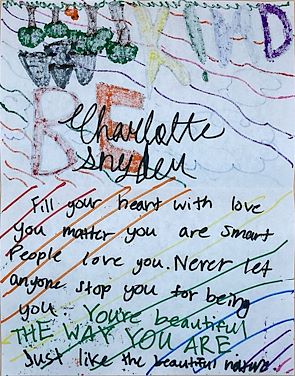 KIND
BE
Charlotte
Snyder
Fill your heart with love
you matter you are smart
People love you. Never let
anyone stop you for being
you. You're beautiful
THE WAY YOU ARE
Just like the beautiful nature.